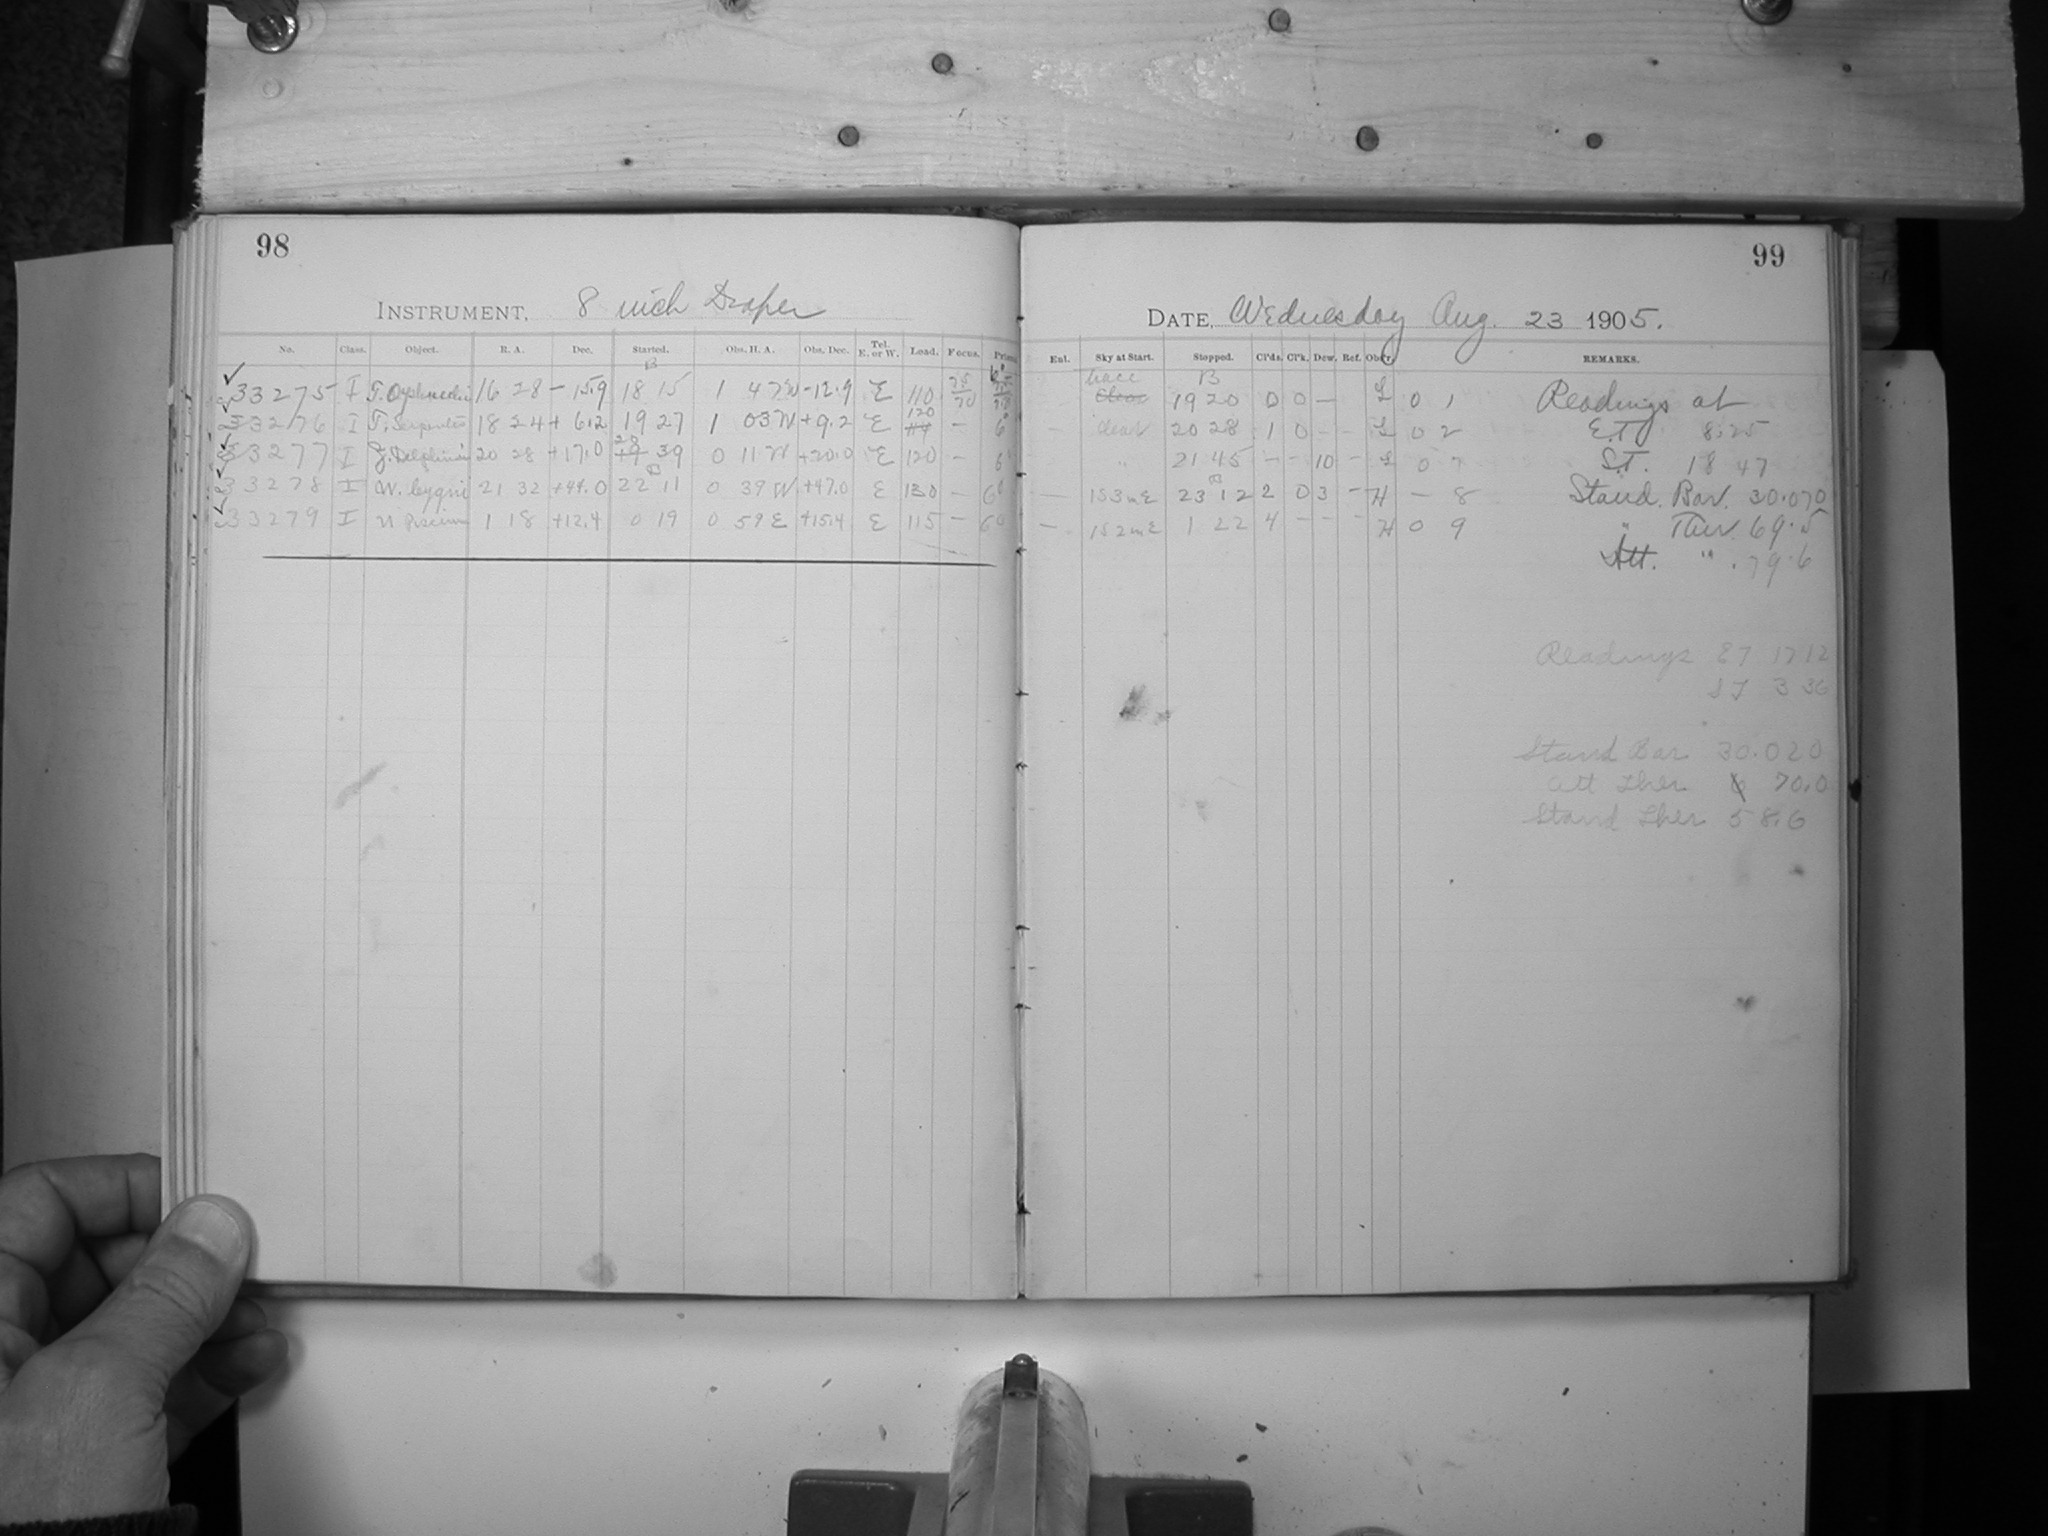 98
INSTRUMENT, 8 inch Draper
No. Class. Object. R. A. Dec. Started. Obs. H. A. Obs. Dec. Tel. E. or W. Load. Focus.
B
33275 I T. Ophiuchi 16 28 -15.9 18 15 1 47W -12.9 E 110
33276 I T. Serpentis 18 24 + 6.2 19 27 1 03W +9.2 E 120 – 6°
33277 I 20 28 +17.0 39 0 11W +20.0 E 120 – 6°
33278 I W. Cygni 21 32 +44.0 22 11 0 39W +47.0 E 130 – 6°
33279 I Piscium 1 18 +12.4 0 19 0 59E +15.4 E 115 – 6°
99
DATE, Wednesday Aug. 23 1905.
Ent. Sky at Start. Stopped. Cl'ds. Cl'k. Dew. Ref. Obs'r. REMARKS.
B
19 20 0 0 – L 0 1 Readings at
– clear 20 28 1 0 – – L 0 2 E.T. 8.25
" 21 45 – – 10 – L 0 7 S.T. 18 47
– 153mE 23 12 2 0 3 – H – 8 Stand. Bar. 30.070
– 152mE 1 22 4 – – – H 0 9 " Ther. 69.5
Att. " . 79.6
Readings 17 12
3 36
Stand Bar 30.020
Att Ther 70.0
Stand Ther 58.6